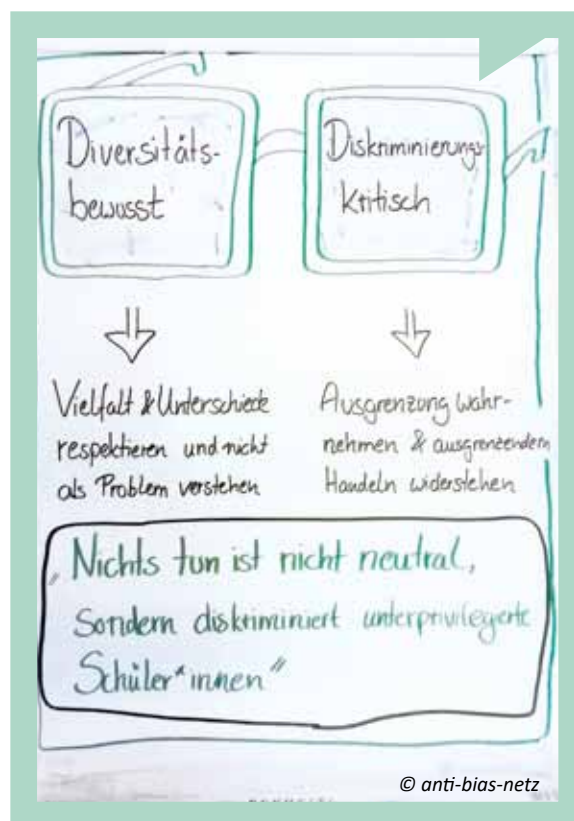 Diversitäts-
bewusst
Diskriminierungs-
kritisch
Vielfalt & Unterschiede
respektieren und nicht
als Problem verstehen
Ausgrenzung wahr-
nehmen & ausgrenzendem
Handeln widerstehen
„Nichts tun ist nicht neutral,
Sondern diskriminiert unterprivilegierte
Schüler*innen"
© anti-bias-netz